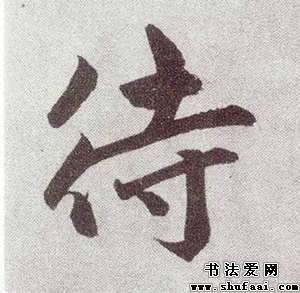 待
书法爱网
www.shufaai.com